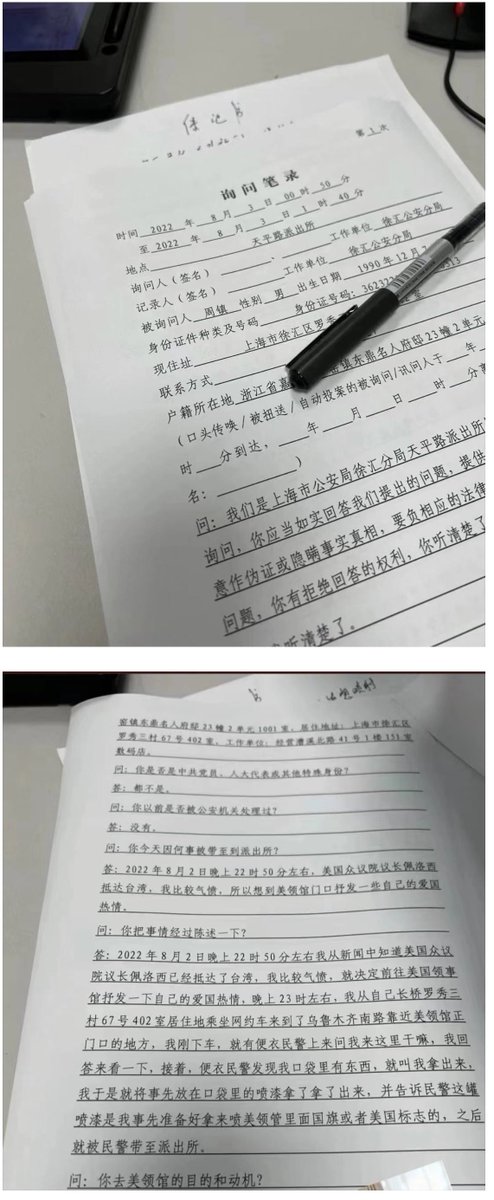 第1次
询问笔录
时间 2022 年 8 月 3 日 00 时 50 分
至 2022 年 8 月 3 日 1 时 40 分
地点 天平路派出所
询问人（签名） 工作单位 徐汇公安分局
记录人（签名） 工作单位 徐汇公安分局
被询问人 周镇 性别 男 出生日期 1990 年 12 月
身份证件种类及号码 身份证号码：
现住址 上海市徐汇区罗秀
联系方式
户籍所在地 浙江省嘉 镇东鼎名人府邸 23 幢 2 单元
（口头传唤／被扭送／自动投案的被询问／讯问人于 年
时 分到达， 年 月 日 时 分
名： ）
问：我们是上海市公安局徐汇分局天平路派出所
询问，你应当如实回答我们提出的问题，提供
意作伪证或隐瞒事实真相，要负相应的法律
问题，你有拒绝回答的权利，你听清楚了
听清楚了。
镇东鼎名人府邸 23 幢 2 单元 1001 室，居住地址：上海市徐汇区
罗秀三村 67 号 402 室，工作单位：经营漕溪北路 41 号 1 楼 151 室
数码店。
问：你是否是中共党员、人大代表或其他特殊身份？
答：都不是。
问：你以前是否被公安机关处理过？
答：没有。
问：你今天因何事被带至到派出所？
答：2022 年 8 月 2 日晚上 22 时 50 分左右，美国众议院议长佩洛西
抵达台湾，我比较气愤，所以想到美领馆门口抒发一些自己的爱国
热情。
问：你把事情经过陈述一下？
答：2022 年 8 月 2 日晚上 22 时 50 分左右我从新闻中知道美国众议
院议长佩洛西已经抵达了台湾，我比较气愤，就决定前往美国领事
馆抒发一下自己的爱国热情，晚上 23 时左右，我从自己长桥罗秀三
村 67 号 402 室居住地乘坐网约车来到了乌鲁木齐南路靠近美领馆正
门口的地方，我刚下车，就有便衣民警上来问我来这里干嘛，我回
答来看一下，接着，便衣民警发现我口袋里有东西，就叫我拿出来，
我于是就将事先放在口袋里的喷漆拿了拿了出来，并告诉民警这罐
喷漆是我事先准备好拿来喷美领管里面国旗或者美国标志的，之后
就被民警带至派出所。
问：你去美领馆的目的和动机？